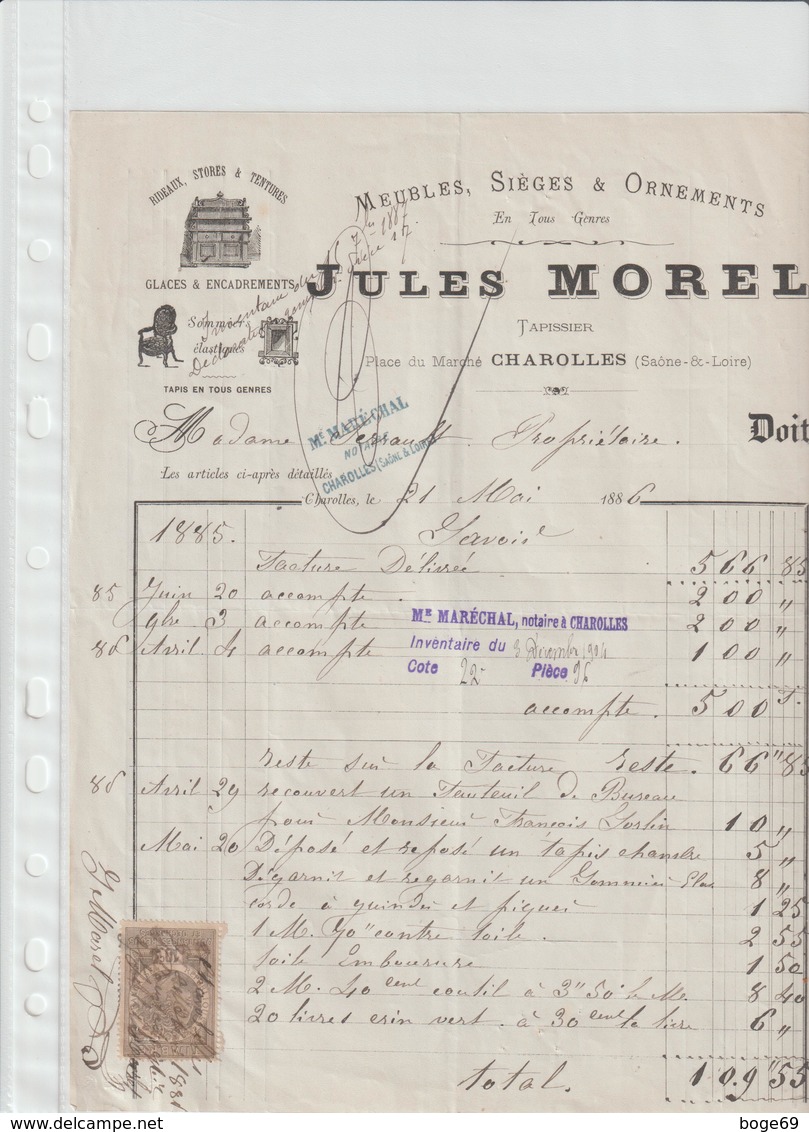 RIDEAUX, STORES & TENTURES
GLACES & ENCADREMENTS
Sommiers
élastiques
TAPIS EN TOUS GENRES
MEUBLES, SIÈGES & ORNEMENTS
En Tous Genres
JULES MOREL
TAPISSIER
Place du Marché CHAROLLES (Saône-&-Loire)
Inventaire du
7bre 1887
Me MARÉCHAL
NOTAIRE
CHAROLLES (SAÔNE & LOIRE)
Madame Perrault Propriétaire. Doit
Les articles ci-après détaillés
Charolles, le 21 Mai 1886
1885. Savoir
Facture Délivrée 566 85
85 Juin 20 accompte. 200 "
9bre 3 accompte 200 "
86 Avril 4 accompte 100 "
Me MARÉCHAL, notaire à CHAROLLES
Inventaire du 3 Décembre 1904
Cote 22 Pièce 96
accompte. 500 F.
reste sur la Facture reste. 66 " 85
86 Avril 29 recouvert un Fauteuil de Bureau
pour Monsieur François Gorlin 10 "
Mai 20 Déposé et reposé un tapis chambre 5 "
Dégarnit et regarnit un Sommier Elas 8 "
corde à guinder et piquer 1 25
1 M. 70" contre toile. 2 55
toile Embourure 1 50
2 M. 40 cent coutil à 3" 50 le M. 8 40
20 livres crin vert. à 30 cent la livre 6 "
total. 109 " 55
J. Morel
10 c
boge69